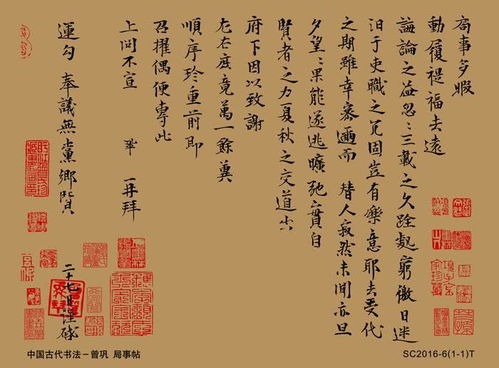 局事多暇
動履禔福去遠
誨論之益忽忽三載之久跧處窮徼日迷
汨于吏職之冗固豈有樂意耶去受代
之期雖幸密邇而替人寂然未聞亦旦
夕望望果能遂逃曠弛實自
賢者之力夏秋之交道出
府下因以致謝
左右庶竟萬一餘冀
順序珍重前即
召擢偶便專此
上問不宣 鞏 再拜
運勾奉議無黨鄉賢
二十七日謹啓
中国古代书法－曾巩 局事帖
SC2016-6(1-1)T